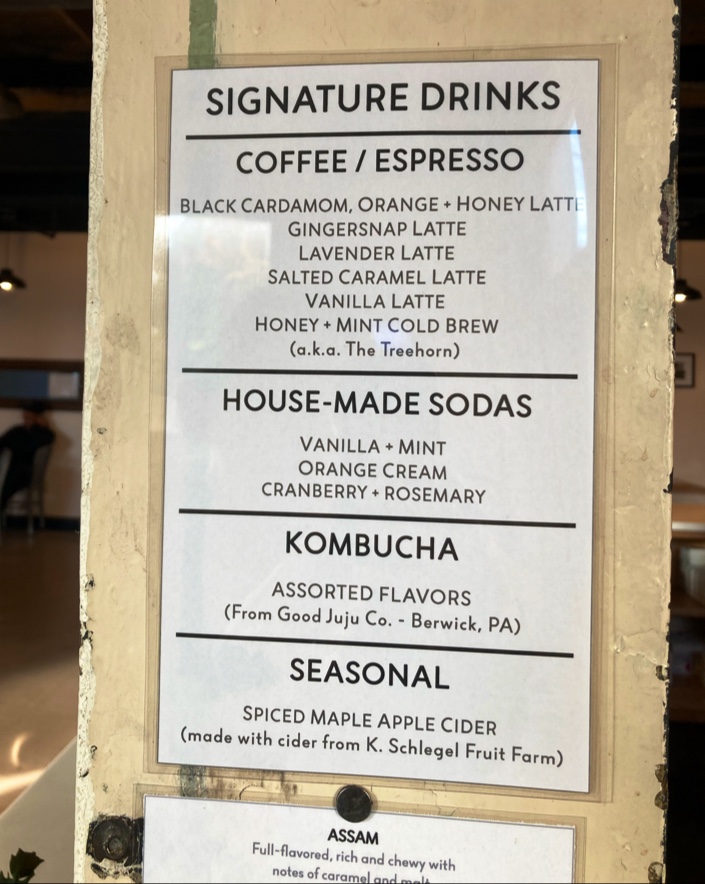 SIGNATURE DRINKS
COFFEE / ESPRESSO
BLACK CARDAMOM, ORANGE + HONEY LATTE
GINGERSNAP LATTE
LAVENDER LATTE
SALTED CARAMEL LATTE
VANILLA LATTE
HONEY + MINT COLD BREW
(a.k.a. The Treehorn)
HOUSE-MADE SODAS
VANILLA + MINT
ORANGE CREAM
CRANBERRY + ROSEMARY
KOMBUCHA
ASSORTED FLAVORS
(From Good Juju Co. - Berwick, PA)
SEASONAL
SPICED MAPLE APPLE CIDER
(made with cider from K. Schlegel Fruit Farm)
ASSAM
Full-flavored, rich and chewy with
notes of caramel and